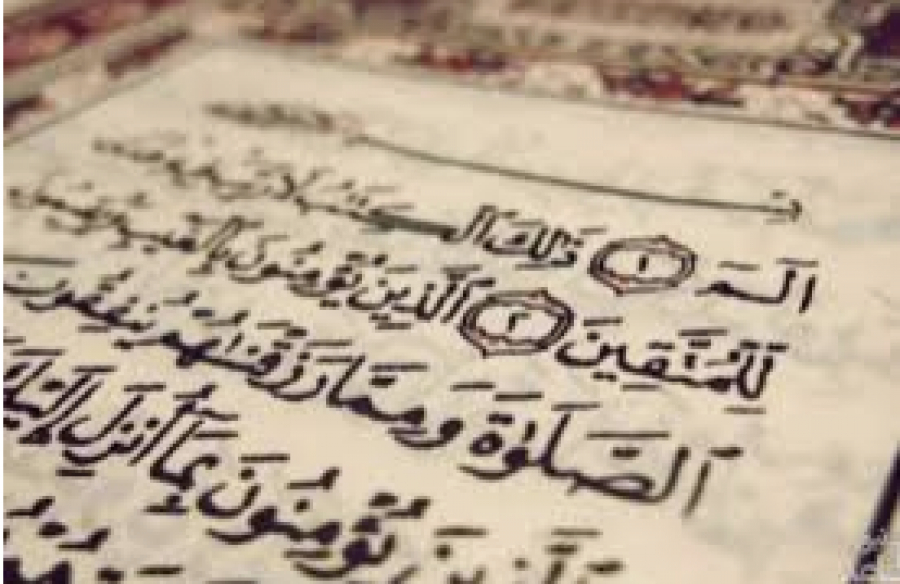 الٓمٓ ١ ذَٰلِكَ ٱلْكِتَٰبُ لَا رَيْبَ فِيهِ
لِّلْمُتَّقِينَ ٢ ٱلَّذِينَ يُؤْمِنُونَ بِٱلْغَيْبِ وَيُقِيمُونَ
ٱلصَّلَوٰةَ وَمِمَّا رَزَقْنَٰهُمْ يُنفِقُونَ
يُؤْمِنُونَ بِمَآ أُنزِلَ إِلَيْكَ